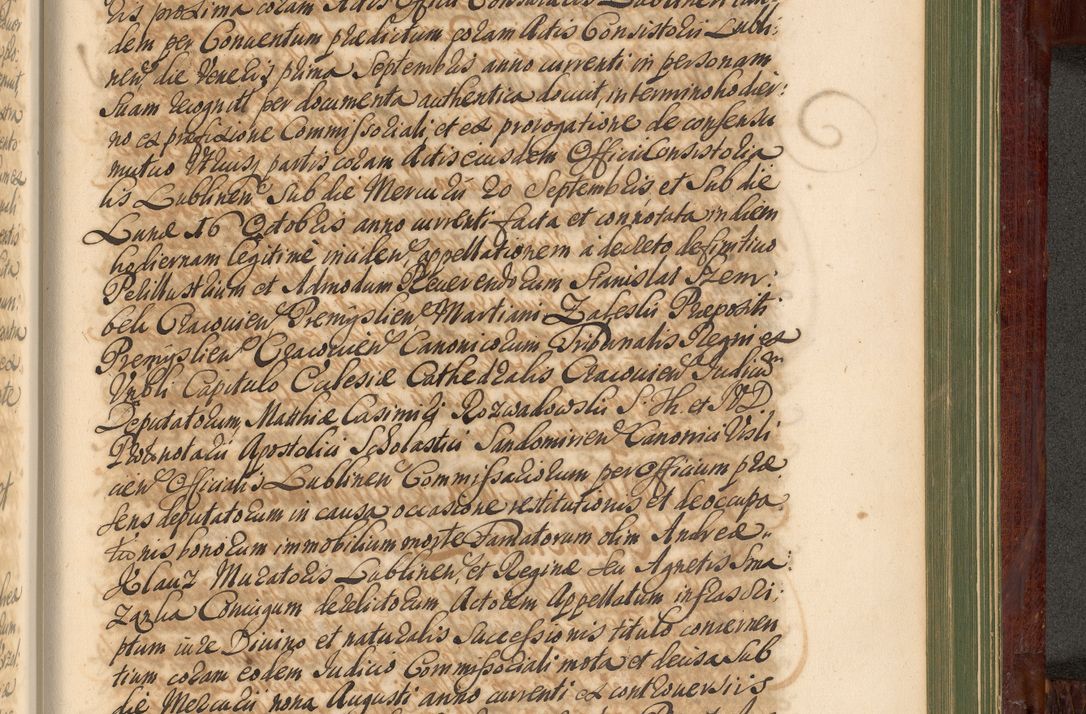 dem per Conventum prædictum coram Actis Consistorii Lubli:
nen̄ die Veneris prima Septembris anno currenti in personam
suam recognit per documenta authentica docuit, in termino hodier:
no ex præfixione Commissoriali, et ex prorogatione de consensu
mutuo utriusq partis coram Actis eiusdem Officii Consistoria
lis Lublinen̄ sub die Mercurii 20 Septembris et sub die
Lunæ 16 Octobris anno currenti facta et connotata in diem
hodiernam legitime inciden̄ appellationem a decreto definitivo
Perillustrium et Admodum Reverendorum Stanislai Szem:
bek Cracovien̄ Premyslien̄, Martiani Zaleski Præpositi
Premyslien̄ Cracovien̄ Canonicorum Tribunalis Regni ex
Vnbli Capitulo Ecclesiæ Cathedralis Cracovien̄ Iudicū
Deputatorum, Matthiæ Casimiri Rozwadowski S. Th. et IVD
Protonotarii Apostolici Scholastici Sandomirien̄ Canonici Visli
cien̄ Officialis Lublinen̄ Commissariorum per Officium præ
sens deputatorum in causa occasione restitutionis et de occupa
tionis bonorum immobilium morte Damatorum olim Andreæ
Klauz Muratoris Lublinen̄, et Reginæ seu Agnetis Sma:
Zanka Coniugum derelictorum Actorem Appellatum infrascri:
ptum iure Divino et naturalis Successionis titulo concernen
tium coram eodem Iudicio Commissoriali mota et decisa sub
die Mercurii nona Augusti anno currenti ex controversiis